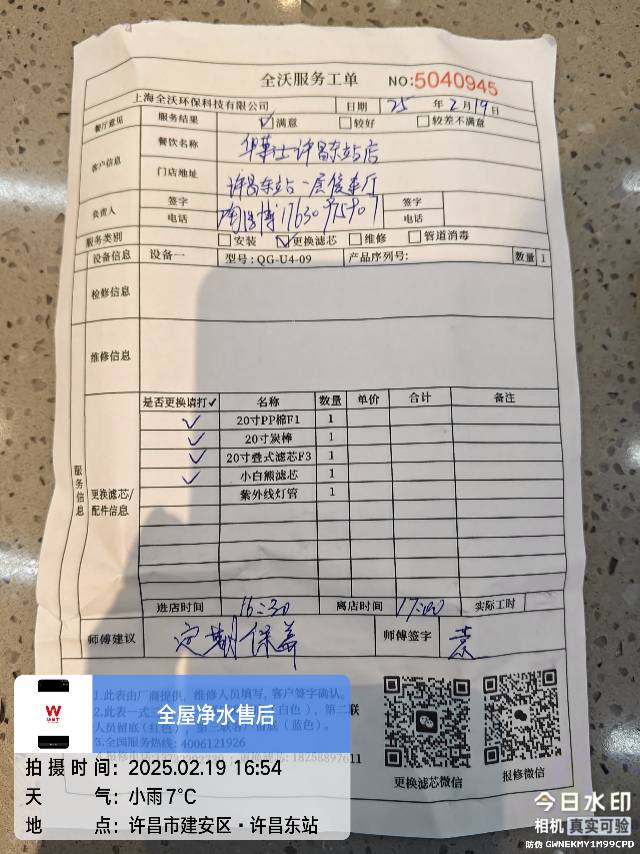 全沃服务工单 NO:5040945
上海全沃环保科技有限公司 日期 25 年 2 月 19 日
餐厅意见 服务结果 ☑满意 □较好 □较差不满意
客户信息 餐饮名称 华莱士许昌东站店
门店地址 许昌东站一层候车厅
负责人 签字 签字
电话 电话
服务类别 □安装 ☑更换滤芯 □维修 □管道消毒
设备信息 设备一 型号:QG-U4-09 产品序列号: 数量 1
检修信息
维修信息
服务信息 更换滤芯/配件信息
是否更换请打✓ 名称 数量 单价 合计 备注
✓ 20寸PP棉F1 1
✓ 20寸炭棒 1
✓ 20寸叠式滤芯F3 1
✓ 小白熊滤芯 1
紫外线灯管 1
进店时间 16:30 离店时间 17:00 实际工时
师傅建议 定期保养 师傅签字
1.此表由厂商提供，维修人员填写，客户签字确认。
2.此表一式三 白色），第二联
人员留底(红色)，第三联客户留底（蓝色）。
3.全国服务热线: 4006121926
更换滤芯: 18258897611
更换滤芯微信 报修微信
全屋净水售后
拍摄时间: 2025.02.19 16:54
天气: 小雨 7°C
地点: 许昌市建安区·许昌东站
今日水印
相机 真实可验
防伪 GWNEKMY1M99CPD